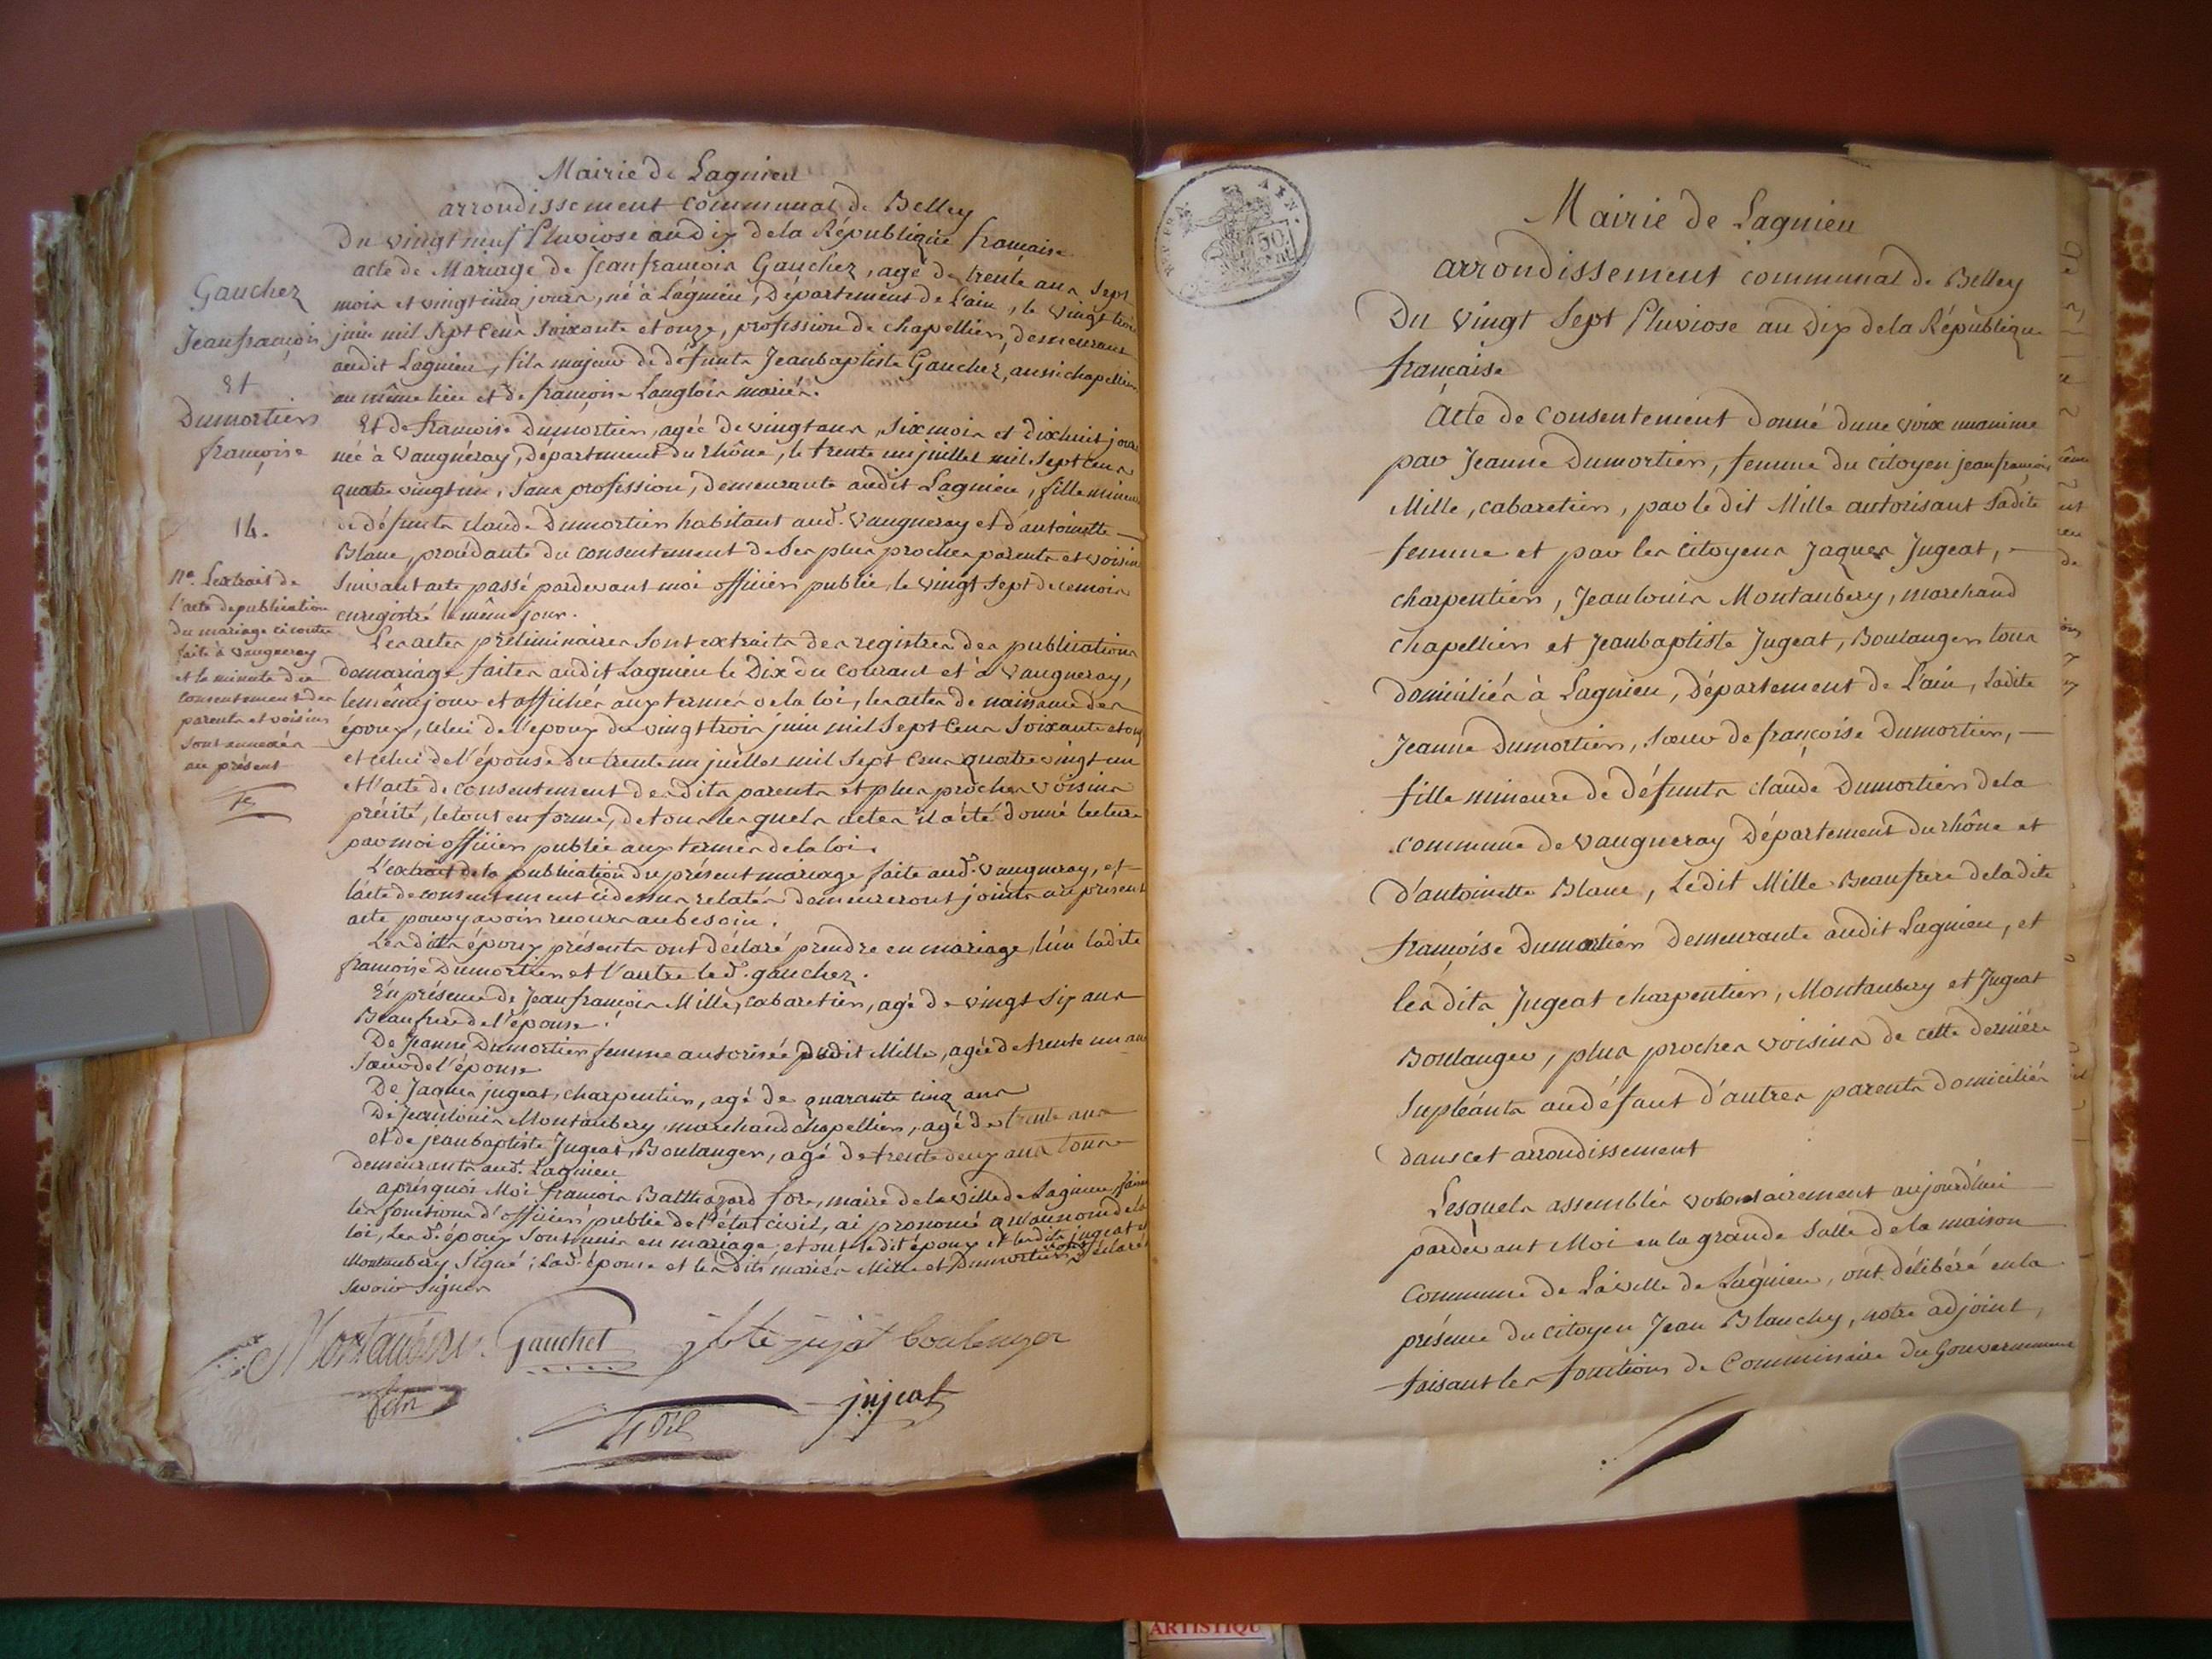 Mairie de Lagnieu
arrondissement communal de Belley
Du vingt neuf Pluviose an dix de la République française
acte de Mariage de Jean françois Gauchez, agé de trente ans sept
mois et vingt cinq jours, né à Lagnieu, Département de l'ain, le vingt trois
juin mil sept cens soixante et onze, profession de chapellier, demeurant
audit Lagnieu, fils majeur de défunts Jeanbaptiste Gauchez, aussi chapellier
au même lieu et de françoise Langlois mariés.
Et de françoise Dumortier, agée de vingt ans, six mois et dix huit jours
née à Vaugneray, département du rhône, le trente un juillet mil sept cens
quatre vingt un, sans profession, demeurante audit Lagnieu, fille mineure
de défunts claude Dumortier habitant aud. Vaugneray et d'antoinette
Blanc, procédante du consentement de ses plus proches parents et voisins
suivant acte passé pardevant moi officier public, le vingt sept de ce mois
enregistré le même jour.
Les actes préliminaires sont extraits des registres des publications
de mariage faites audit Lagnieu le Dix du courant et à Vaugneray,
le même jour et affichés aux termes de la loi, les actes de naissance des
époux, celui de l'époux du vingt trois juin mil sept cens soixante et onze
et celui de l'épouse du trente un juillet mil sept cens quatre vingt un
et l'acte de consentement desdits parents et plus proches voisins
précité, le tout en forme, de tous lesquels actes il a été donné lecture
par moi officier public aux termes de la loi.
L'extrait de la publication du présent mariage faite aud. Vaugneray, et
l'acte de consentement cidessus relatés demeureront joints au présent
acte pour y avoir recours au besoin.
Lesdits époux présents ont déclaré prendre en mariage, l'un ladite
françoise Dumortier et l'autre led. gauchez.
En présence de Jean françois Mille, cabaretier, agé de vingt six ans
Beaufrere de l'épouse.
De Jeanne Dumortier femme autorisée dudit Mille, agée de trente un ans
sœur de l'épouse
De Jaques jugeat, charpentier, agé de quarante cinq ans
De Jeanlouis Montaubery, marchand chapellier, agé de trente ans
et de jeanbaptiste Jugeat, Boulanger, agé de trente deux ans tous
demeurants aud. Lagnieu
après quoi Moi françois Balthazard fore, maire de la ville de Lagnieu, faisant
les fonctions d'officier public de l'état civil, ai prononcé qu'au nom de la
loi, les d. époux sont unis en mariage; et ont ledit époux et lesdits jugeat et
Montaubery signé; lad. épouse et les dits mariés Mille et Dumortier ont déclaré
savoir signer
Montaubery Gauchet jbte jujat boulenger
jujeat
Gauchez
Jeanfrançois
Et
Dumortier
françoise
14.
Na. L'extrait de
l'acte de publication
du mariage ci contre
faite à Vaugneray
et la minute du
consentement des
parents et voisins
sont annexés
au présent
Mairie de Lagnieu
arrondissement communal de Belley
Du vingt sept Pluviose an Dix de la République
française
Acte de consentement donné d'une voix unanime
par Jeanne Dumortier, femme du citoyen jean françois
Mille, cabaretier, par le dit Mille autorisant sadite
femme et par les citoyens Jaques Jugeat,
charpentier, Jeanlouis Montaubery, marchand
chapellier et Jeanbaptiste Jugeat, Boulanger tous
domiciliés à Lagnieu, Département de L'ain, ladite
Jeanne Dumortier, sœur de françoise Dumortier,
fille mineure de défunts claude Dumortier de la
commune de Vaugneray Département du rhône et
d'antoinette Blanc, Ledit Mille Beaufrere de ladite
françoise Dumortier demeurante audit Lagnieu, et
les dits Jugeat charpentier, Montaubery et Jugeat
Boulanger, plus proches voisins de cette derniére
supléants au défaut d'autres parents domiciliés
dans cet arrondissement
Lesquels assemblés volontairement aujourd'hui
pardevant Moi en la grande salle de la maison
Commune de La ville de Lagnieu, ont délibéré en la
présence du citoyen Jean Blanchy, notre adjoint,
faisant les fonctions de Commissaire du Gouvernement
ARTISTIQU